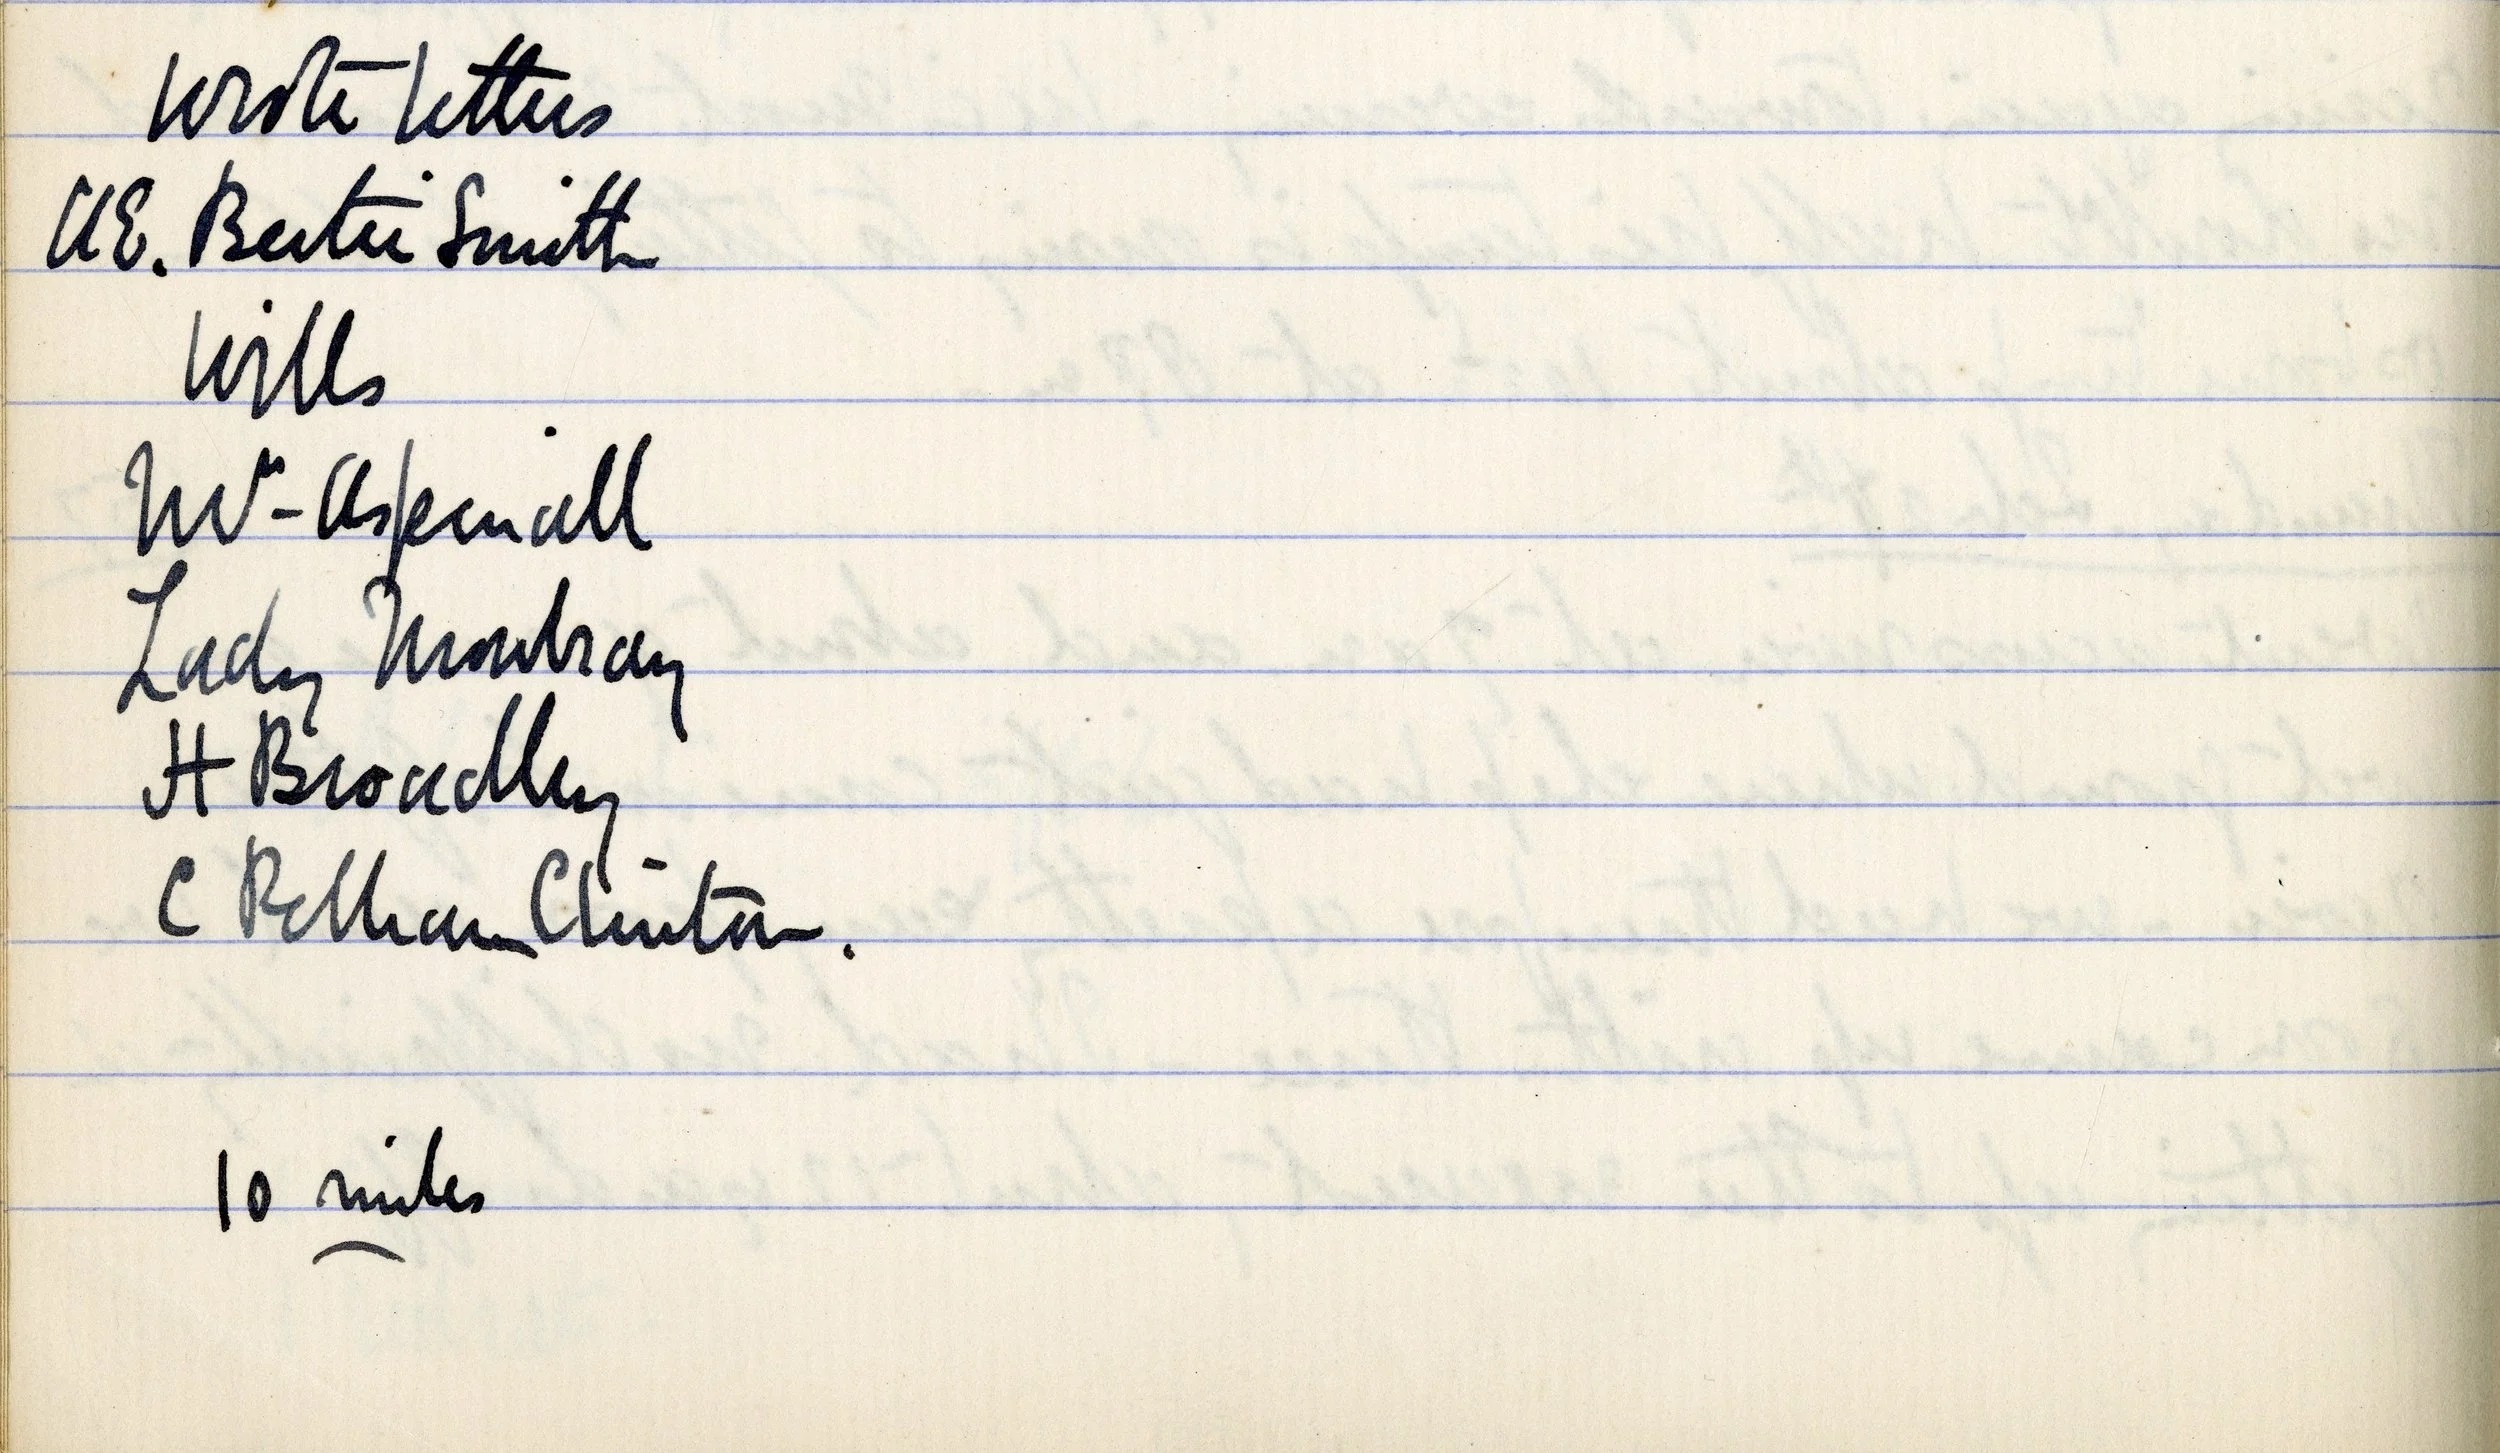 Wrote letters
A.E. Bertie Smith
Wills
Mr - Aspinall
Lady Mowbray
H Broadley
C Pelham Clinton.
10 miles